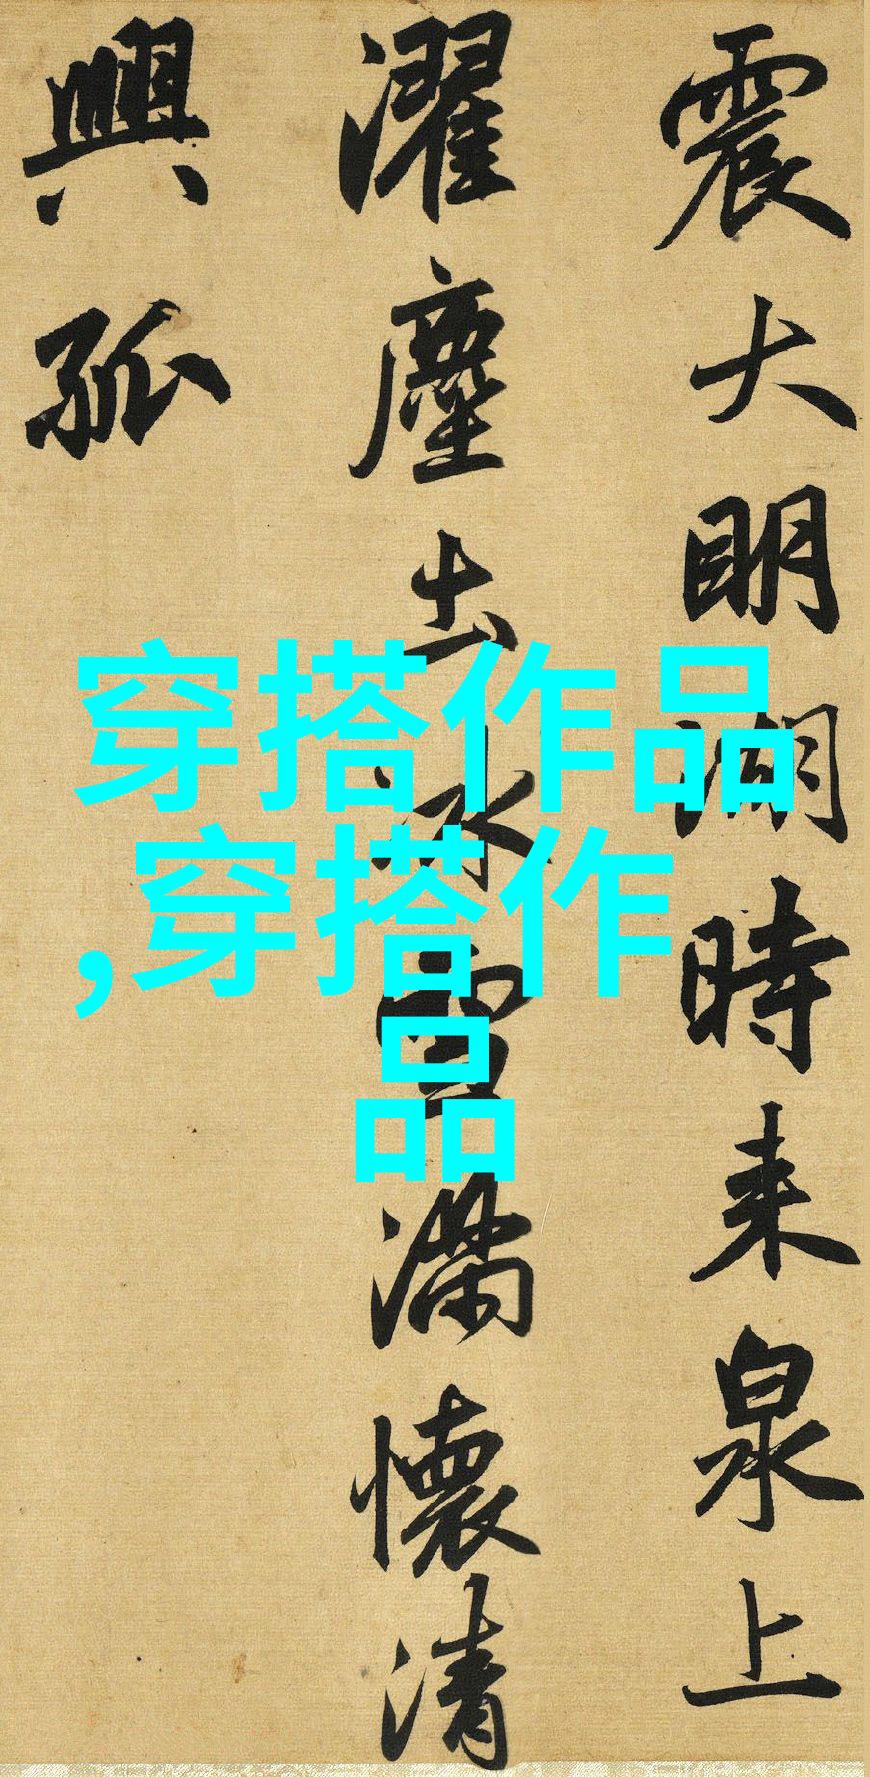 震大明湖時来泉上
濯塵土冰雪滿懷清
興孤
穿搭作品
,穿搭作
品